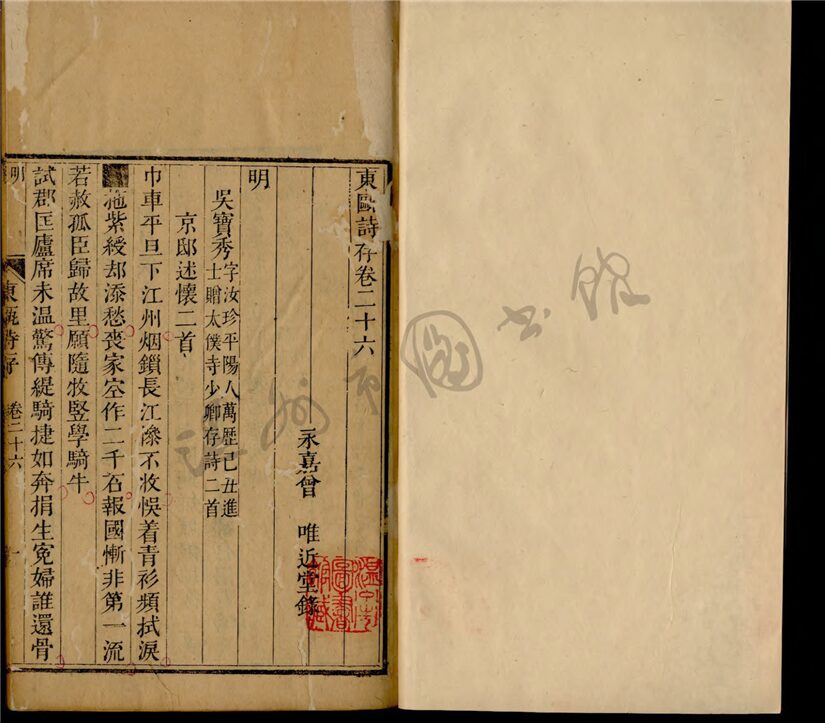 東甌詩存卷二十六
永嘉曾唯近堂錄
明
吳寶秀字汝珍平陽人萬歷己丑進
士贈太僕寺少卿存詩二首
京邸述懷二首
巾車平旦下江州烟鎖長江慘不收悞着青衫頻拭淚
拖紫綬却添愁喪家空作二千石報國慚非第一流
若赦孤臣歸故里願隨牧豎學騎牛
試郡匡廬席未温驚傳緹騎捷如奔捐生寃婦誰還骨
明
東甌詩存
卷二十六
一
溫州市圖書館